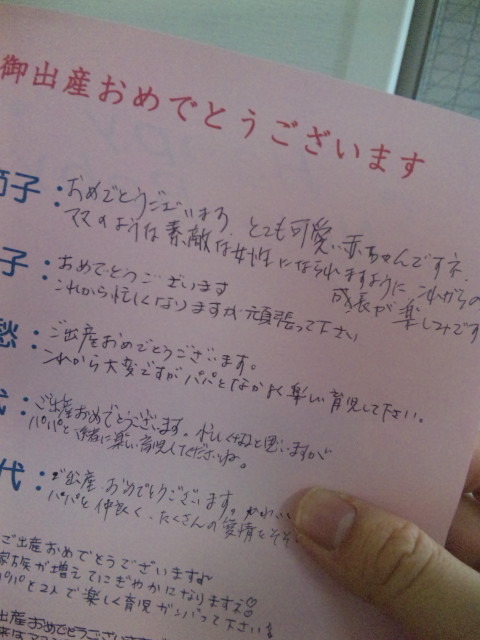 御出産おめでとうございます
子:おめでとうございます。とても可愛い赤ちゃんですネ。
ママのような素敵な女性になられますように これからの
成長が楽しみです
子:おめでとうございます
これから忙しくなりますが頑張って下さい
愁:ご出産おめでとうございます。
これから大変ですがパパとなかよく楽しい育児して下さい。
ご出産おめでとうございます。忙しくなると思いますが
パパと一緒に楽しい育児してくださいね。
代:ご出産おめでとうございます。かわいい
パパと仲良く、たくさんの愛情をそそ
ご出産おめでとうございます
家族が増えてにぎやかになりますネ♡
パパと2人で楽しく育児ガンバって下さい
出産おめでとうござい